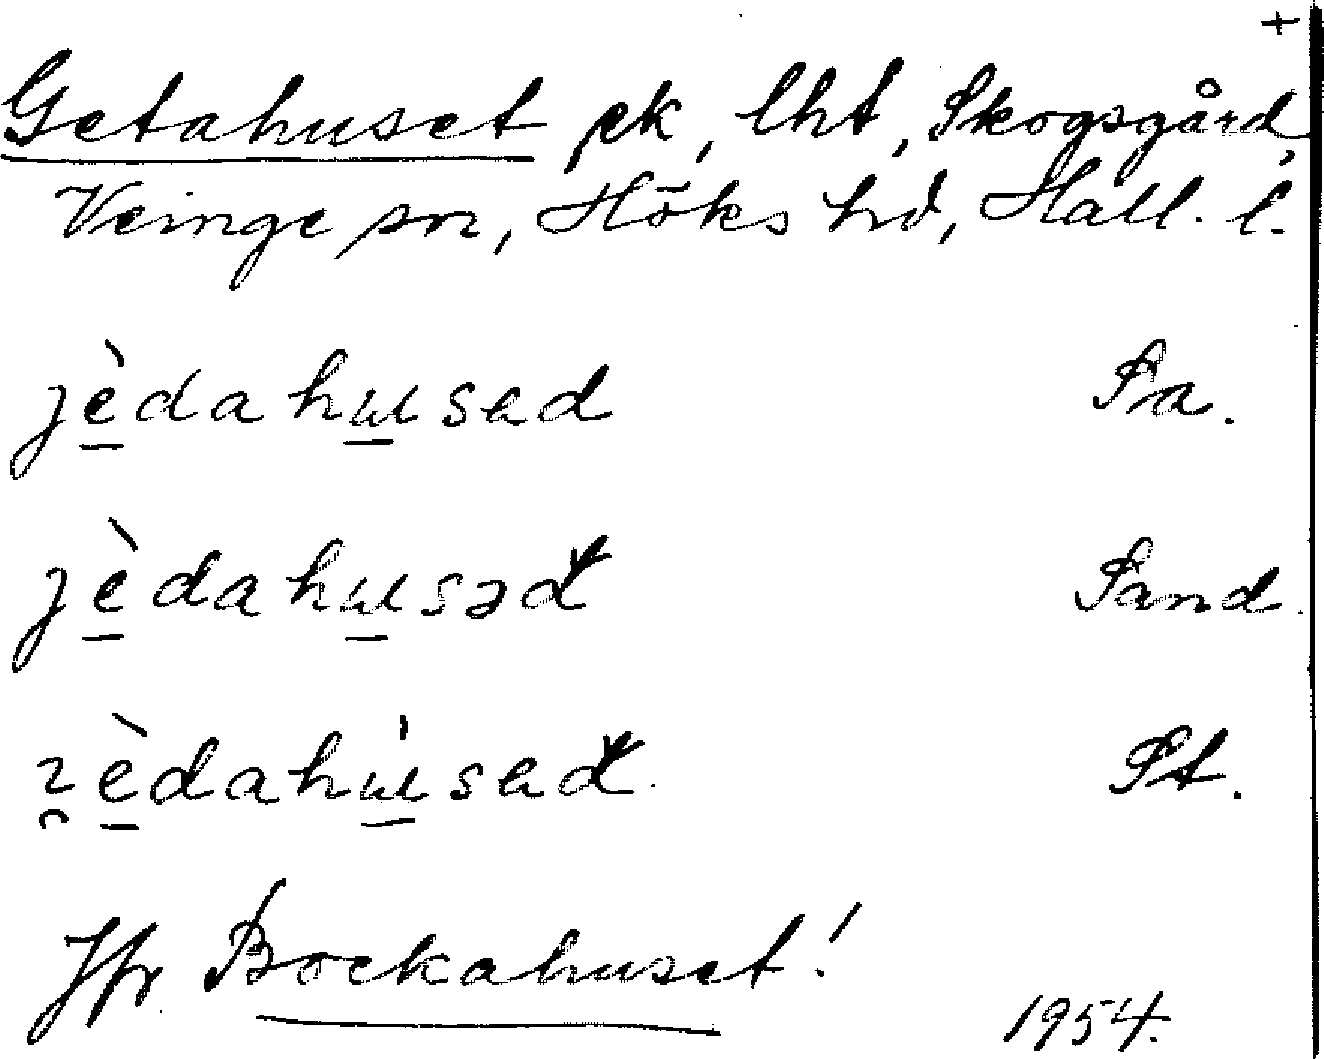 +
Getahuset ek, lht, Skogsgård,
Veinge sn, Höks hd, Hall. l.
jèdahusad Pa.
jèdahusəd Sand.
Pt.
Jfr Bockahuset!
1954.